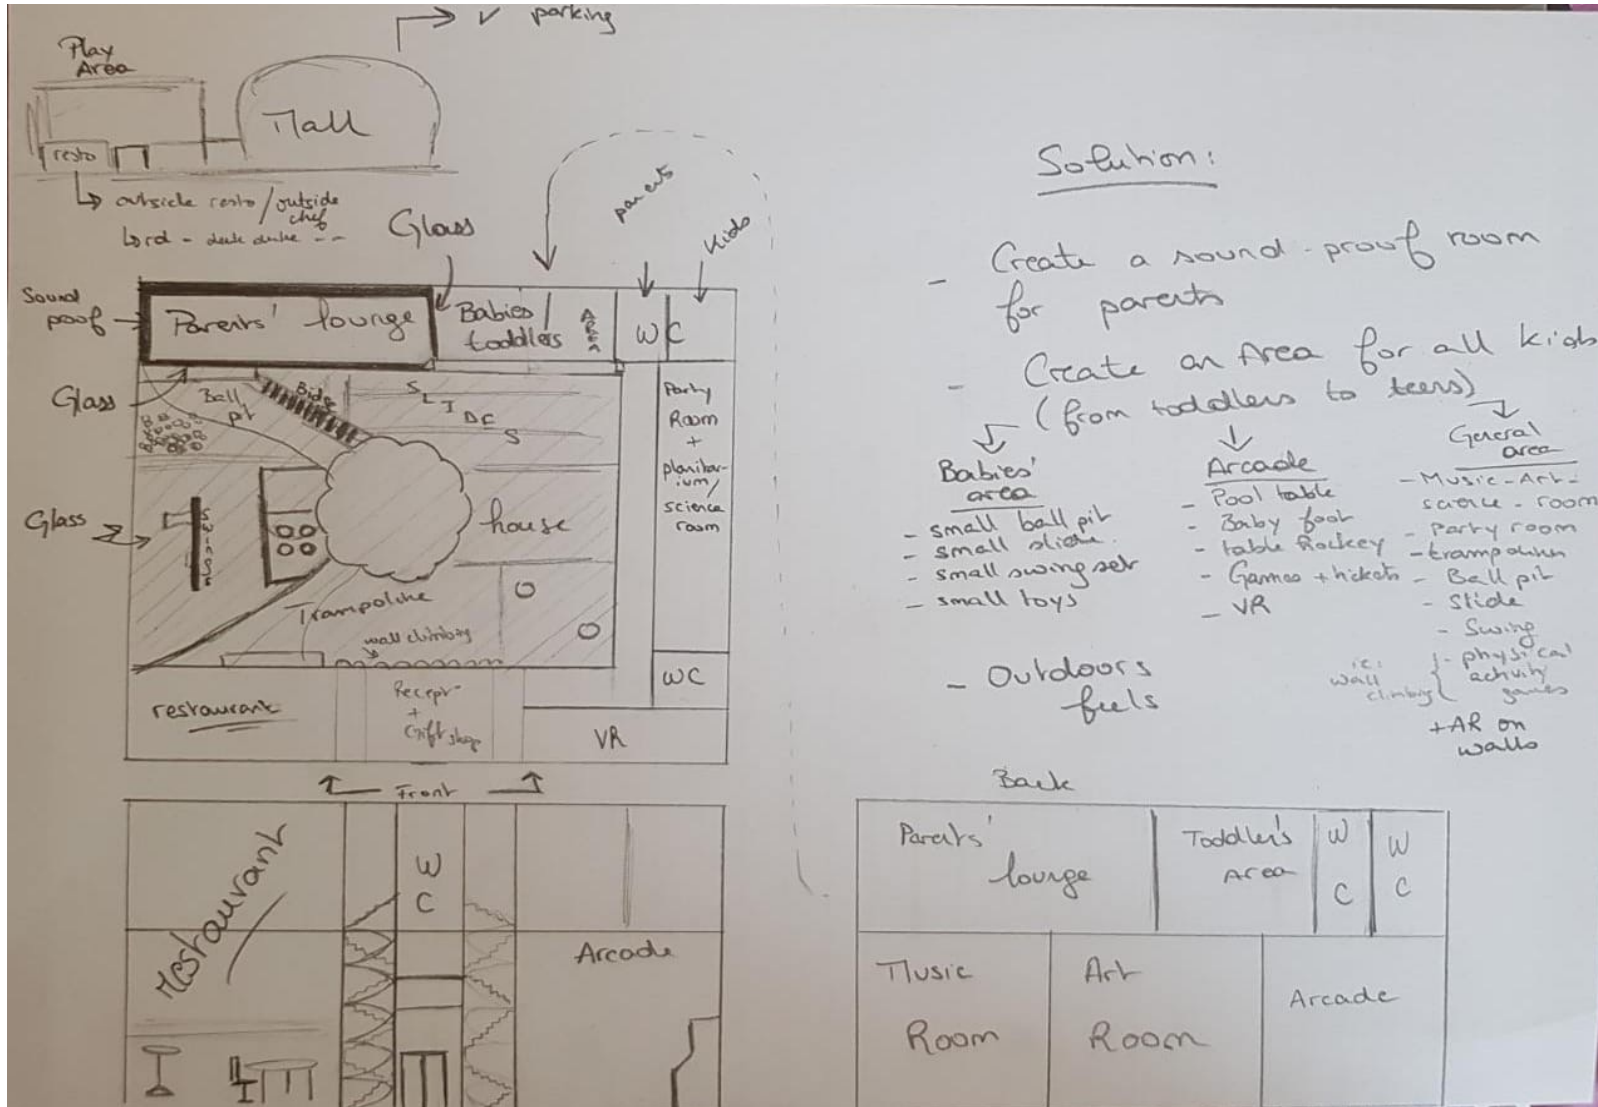 parking
Play
Area
Mall
resto
outside resto / outside
chef
Glass
parents
Kids
Sound
poof
Parents' lounge
Babies /
toddlers
AREA
W C
Glass
Ball
pit
SLIDES
Party
Room
+
science
room
Glass
house
Trampoline
wall climbing
restaurant
Recept-
+
Gift shop
WC
VR
Front
Restaurant
W
C
Arcade
Solution:
- Create a sound-proof room
for parents
- Create an Area for all kids
(from toddlers to teens)
Babies'
area
- small ball pit
- small slide
- small swing set
- small toys
Arcade
- Pool table
- Baby foot
- table Hockey
- Games + tickets
- VR
General
area
- Music-Art-
science-room
- Party room
- Ball pit
- Slide
- Swing
- physical
activity
games
i.e:
wall
climbing
+AR on
walls
- Outdoors
feels
Back
Parents'
lounge
Toddler's
Area
W
C
W
C
Music
Room
Art
Room
Arcade